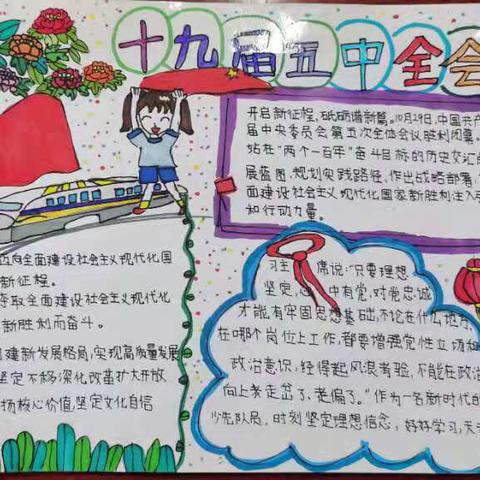 十九届五中全会
开启新征程,砥砺谱新篇。10月29日,中国共产
届中央委员会第五次全体会议胜利闭幕。
站在“两个一百年”奋斗目标的历史交汇
展蓝图,规划实践路径,作出战略部署,
面建设社会主义现代化国家新胜利注入
和行动力量。
迈向全面建设社会主义现代化国
新征程。
夺取全面建设社会主义现代化
新胜利而奋斗。
建新发展格局,实现高质量发展
坚定不移深化改革扩大开放
扬核心价值,坚定文化自信
习主席说:“只要理想
坚定,心中有党,对党忠诚
才能有牢固思想基础,不论在什么地方
在哪个岗位上工作,都要增强党性立场和
政治意识,经得起风浪考验,不能在政治
向上考走岔了,老偏了。”作为一名新时代的
少先队员,时刻坚定理想信念,好好学习,天